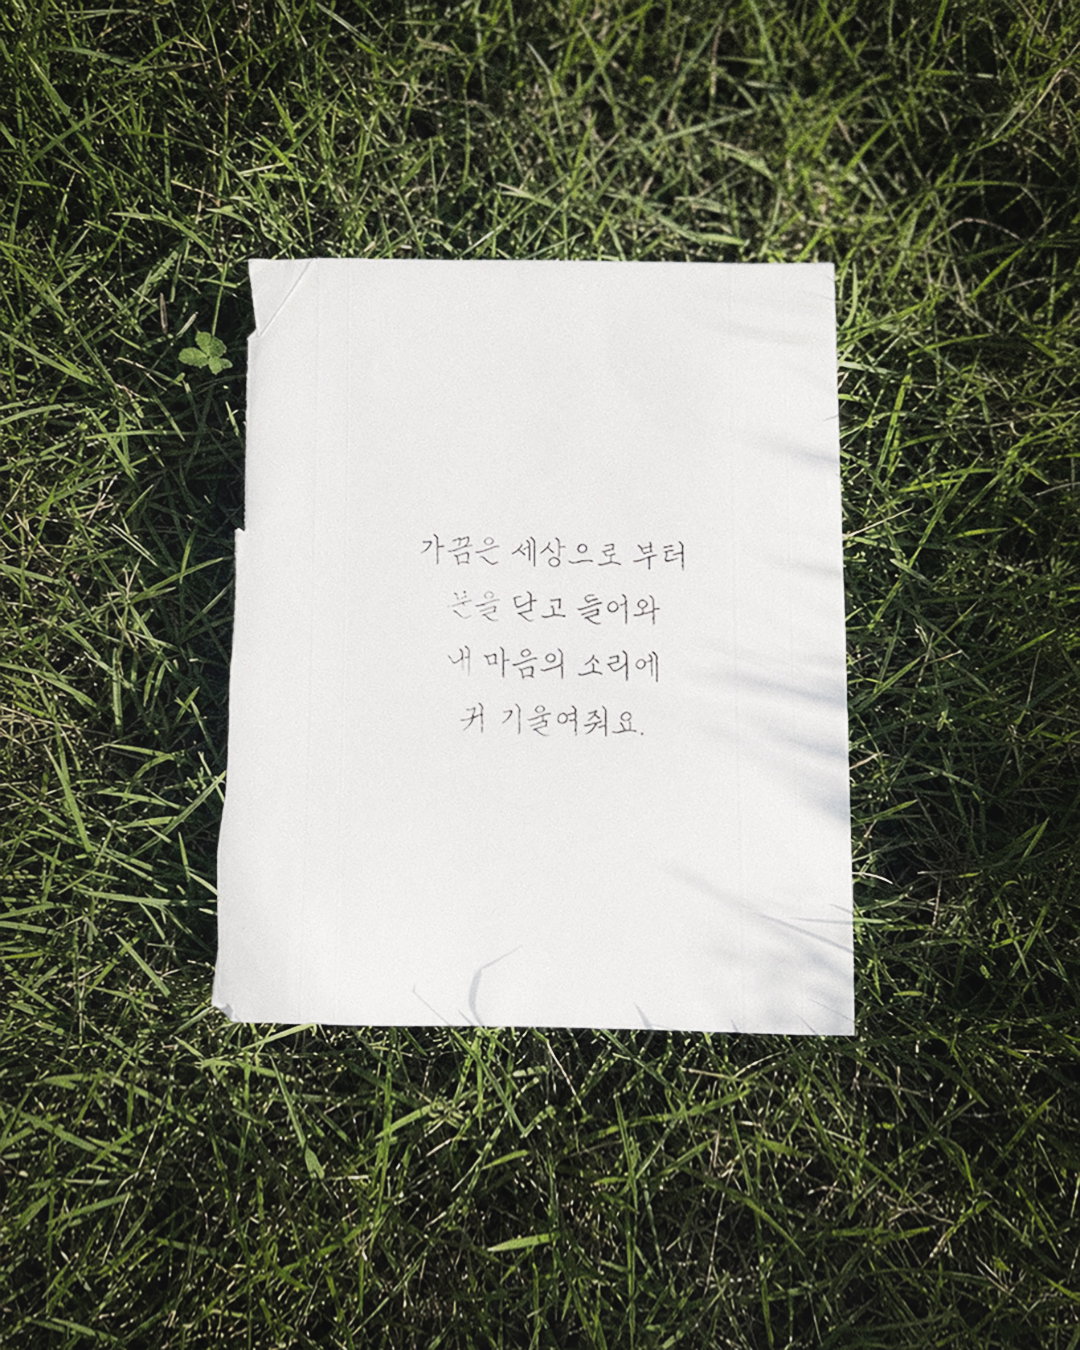 가끔은 세상으로 부터
문을 닫고 들어와
내 마음의 소리에
귀 기울여줘요.